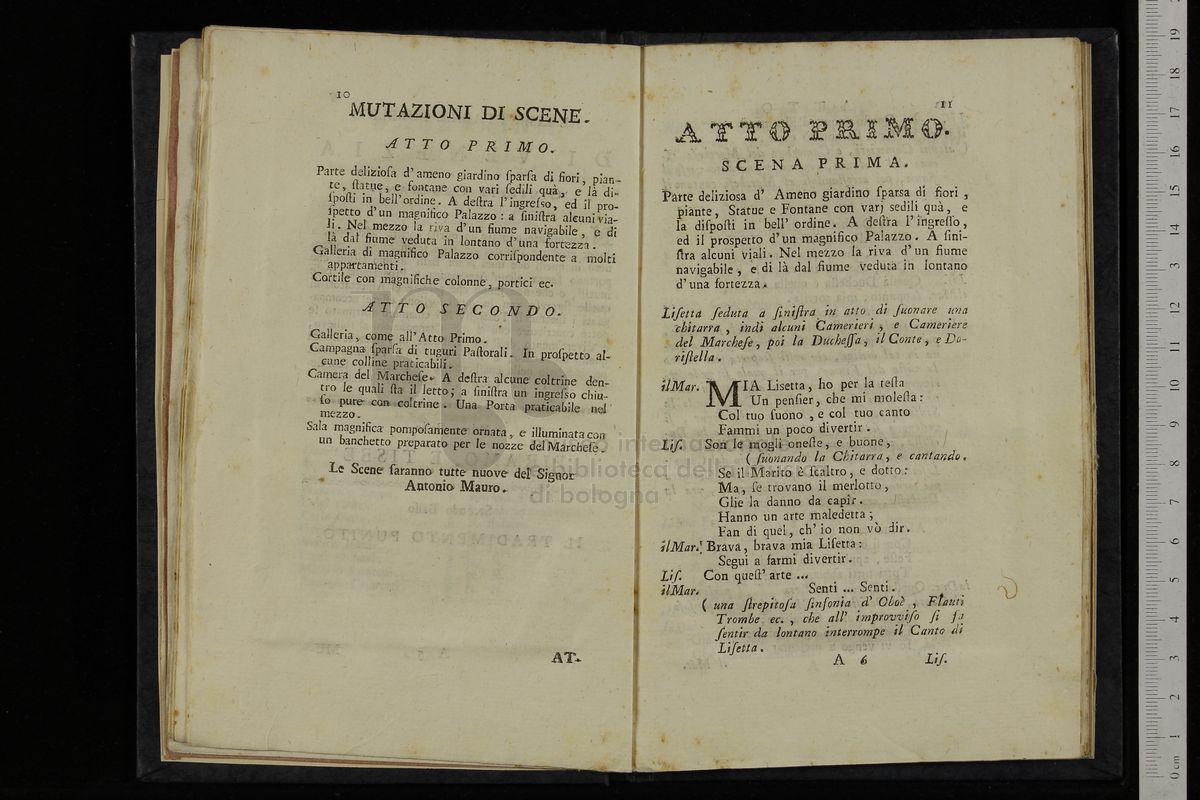 10
MUTAZIONI DI SCENE.
ATTO PRIMO.
Parte delizioſa d' ameno giardino ſparſa di fiori, pian-
te, ſtatue, e fontane con vari ſedili quà, e là di-
ſpoſti in bell'ordine. A deſtra l'ingreſso, ed il pro-
ſpetto d'un magnifico Palazzo: a ſiniſtra alcuni via-
li. Nel mezzo la riva d'un fiume navigabile, e di
là dal fiume veduta in lontano d'una fortezza.
Galleria di magnifico Palazzo corriſpondente a molti
appartamenti.
Cortile con magnifiche colonne, portici ec.
ATTO SECONDO.
Galleria, come all'Atto Primo.
Campagna ſparſa di tuguri Paſtorali. In proſpetto al-
cune colline praticabili.
Camera del Marcheſe. A deſtra alcune coltrine den-
tro le quali ſta il letto; a ſiniſtra un ingreſso chiu-
ſo pure con coltrine. Una Porta praticabile nel
mezzo.
Sala magnifica pompoſamente ornata, e illuminata con
un banchetto preparato per le nozze del Marcheſe.
Le Scene ſaranno tutte nuove del Signor
Antonio Mauro.
AT-
11
ATTO PRIMO.
SCENA PRIMA.
Parte deliziosa d' Ameno giardino ſparsa di fiori,
piante, Statue e Fontane con varj sedili quà, e
la diſpoſti in bell' ordine. A deſtra l'ingreſſo,
ed il prospetto d'un magnifico Palazzo. A ſini-
ſtra alcuni viali. Nel mezzo la riva d'un fiume
navigabile, e di là dal fiume veduta in lontano
d'una fortezza.
Liſetta ſeduta a ſiniſtra in atto di ſuonare una
chitarra, indi alcuni Camerieri, e Cameriere
del Marcheſe, poi la Ducheſſa, il Conte, e Do-
riſtella.
ilMar. MIA Lisetta, ho per la teſta
Un penſier, che mi moleſta:
Col tuo ſuono, e col tuo canto
Fammi un poco divertir.
Liſ. Son le mogli oneſte, e buone,
( ſuonando la Chitarra, e cantando.
Se il Marito è ſcaltro, e dotto:
Ma, ſe trovano il merlotto,
Glie la danno da capir.
Hanno un arte maledetta;
Fan di quel, ch' io non vò dir.
ilMar. Brava, brava mia Liſetta:
Segui a farmi divertir.
Liſ. Con queſt' arte ...
ilMar. Senti ... Senti.
( una ſtrepitoſa ſinfonia d' Oboè, Flauti
Trombe ec., che all' improvviſo ſi fa
ſentir da lontano interrompe il Canto di
Liſetta.
A 6 Liſ.